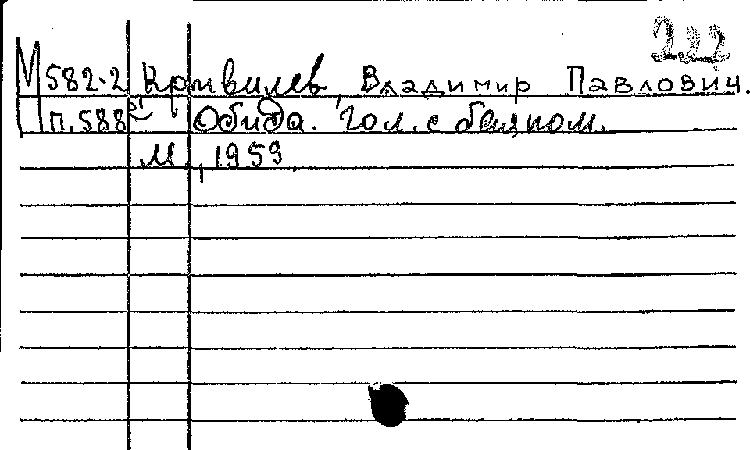 222
М582-2 Кривилев, Владимир Павлович.
П.588 Обида. Гол. с баяном.
М., 1959